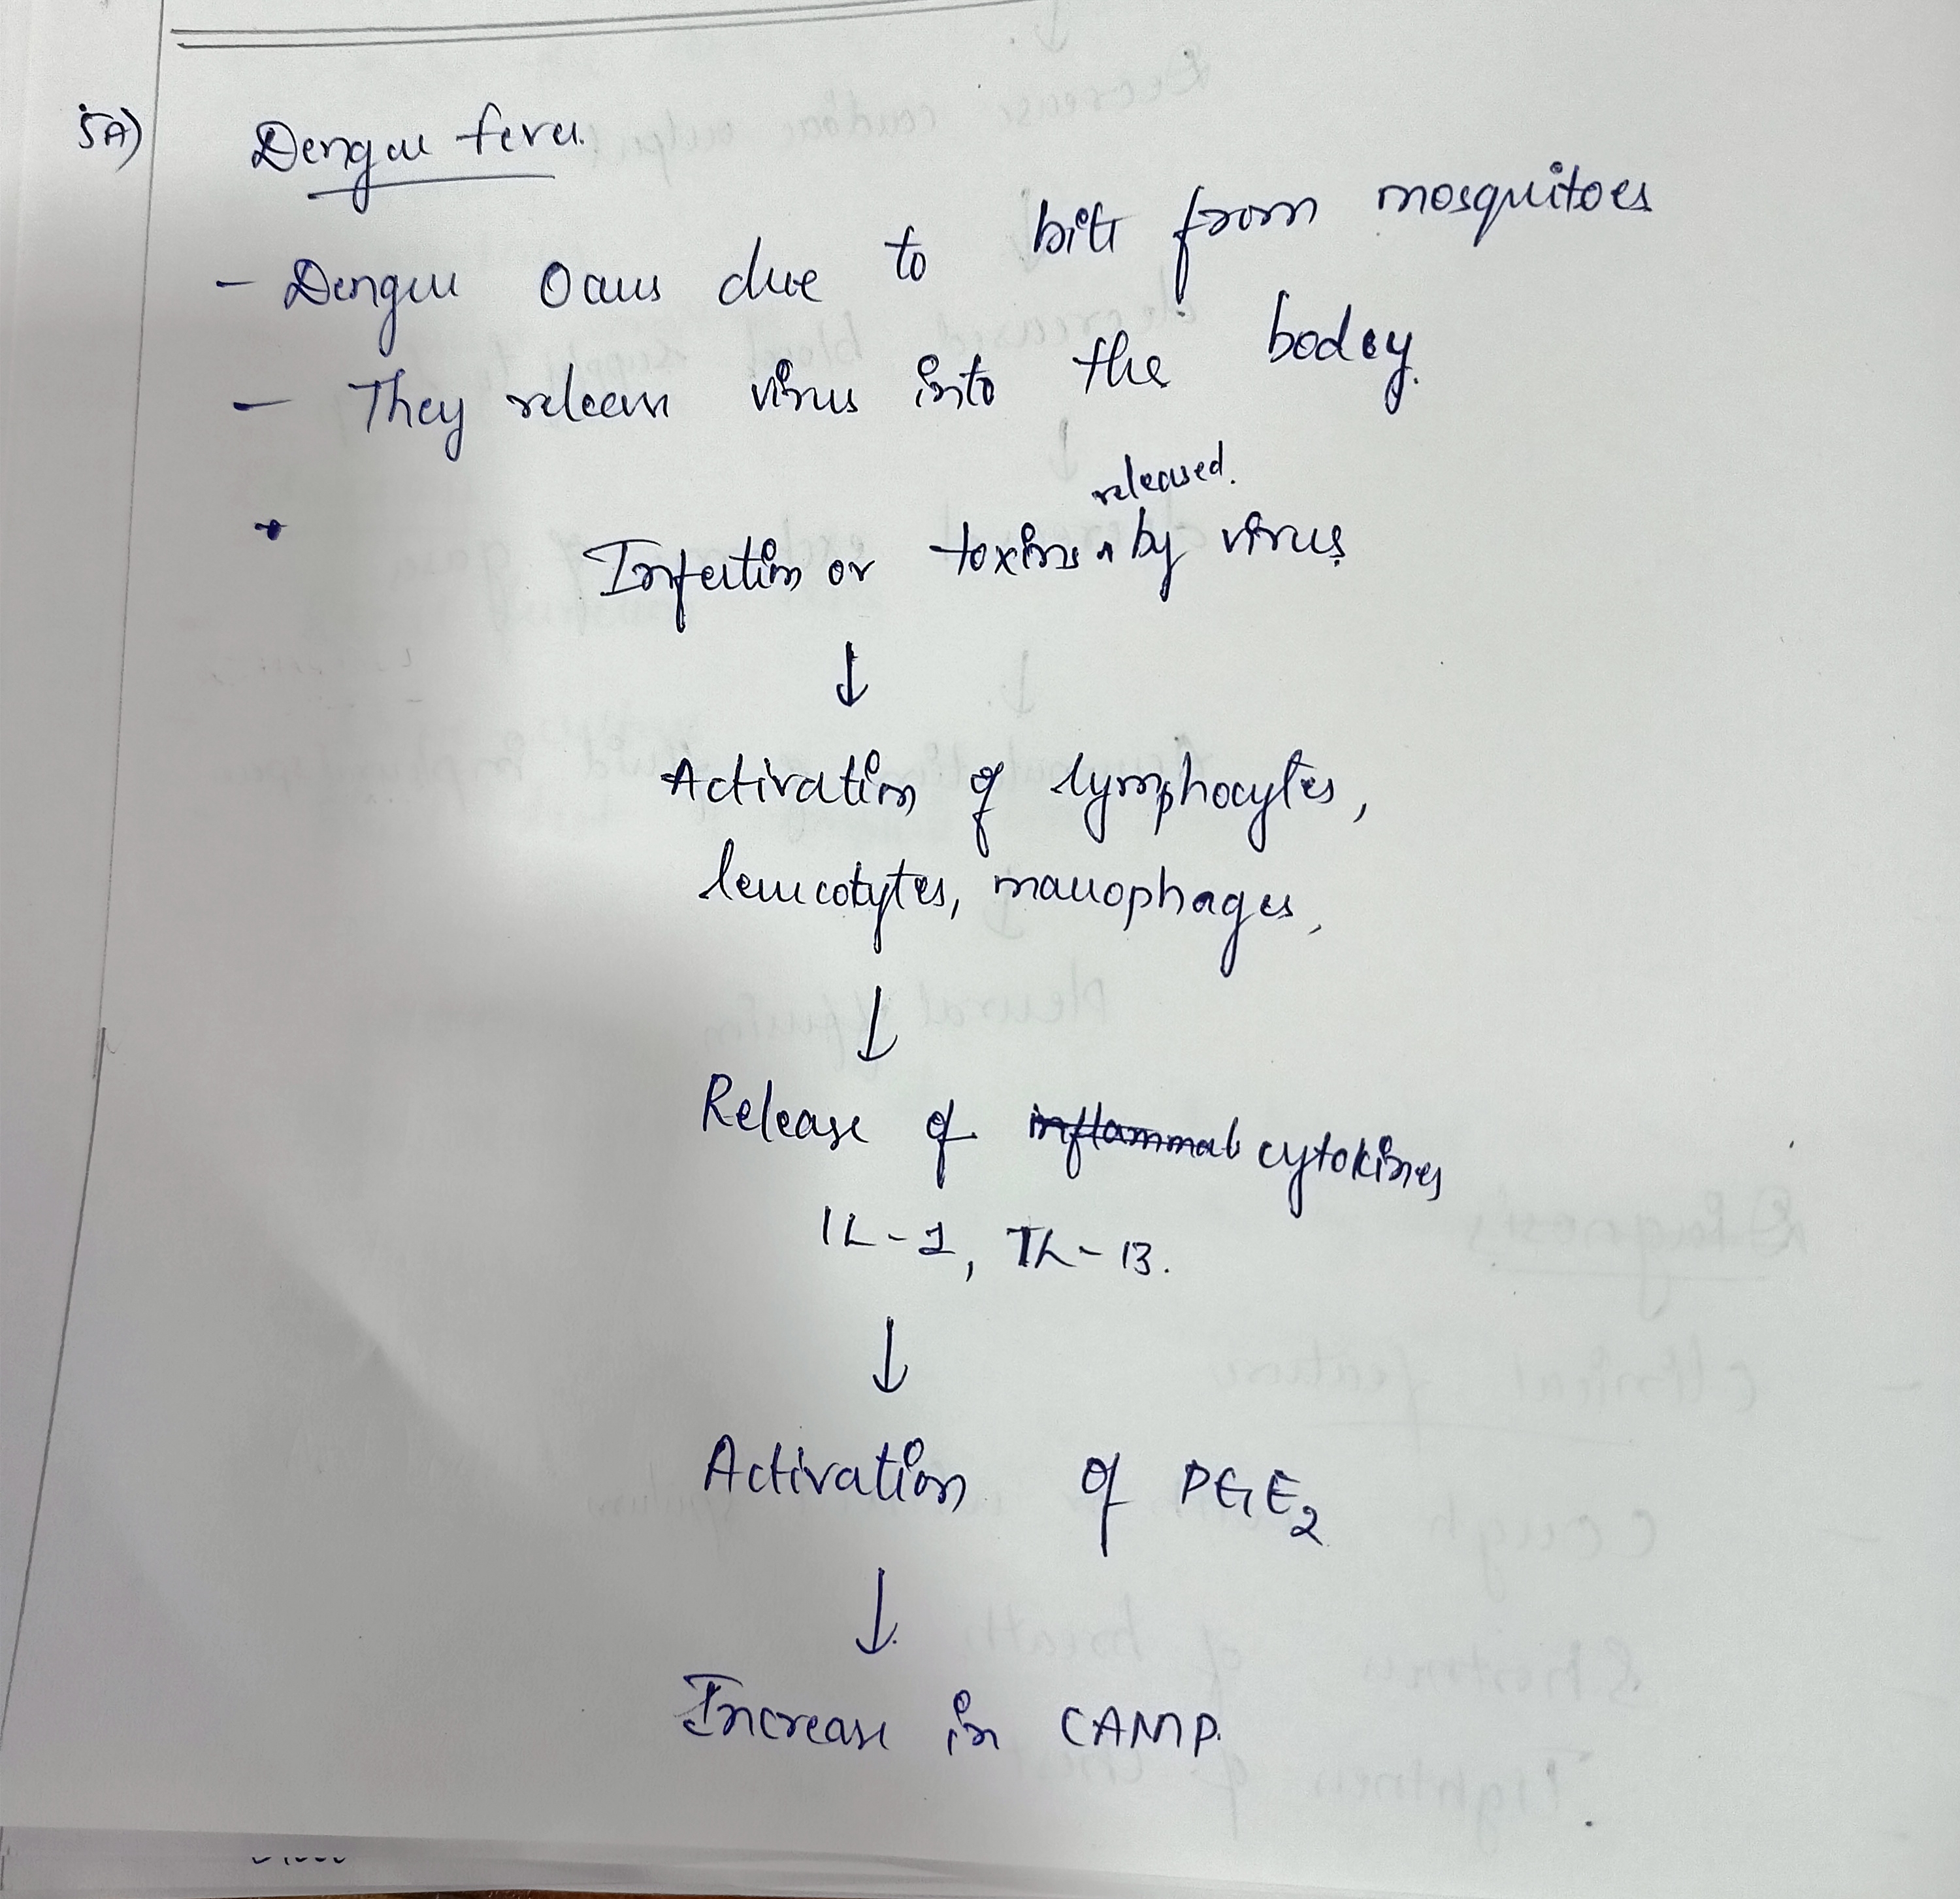 5A) Dengue fever.
- Dengue Occus due to bite from mosquitoes
- They release virus into the bodey.
released.
Infection or toxins ^ by virus
↓
Activation of lymphocytes,
leucotytes, macrophages,
↓
Release of inflammat cytokines
IL-1, IL-13.
↓
Activation of PGE2
↓
Increase in CAMP.